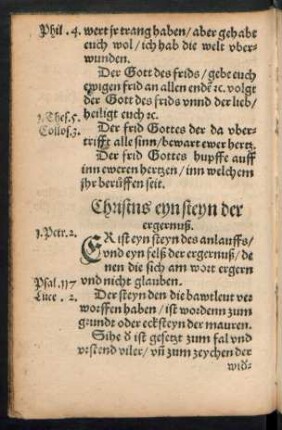 Phil . 4. wert jr trang haben / aber gehabt
euch wol / ich hab die welt vber-
wunden.
Der Gott des frids / gebe euch
ewigen frid an allen ende ꝛc. volgt
der Gott des frids vnnd der lieb /
1. Thes. 5. heiligt euch ꝛc.
Collos. 3. Der frid Gottes der da vber-
trifft alle sinn / bewart ewer hertz.
Der frid Gottes hupffe auff
inn eweren hertzen / inn welchem
jhr berüffen seit.
Christus eyn steyn der
ergernuß.
1. Petr. 2. ER ist eyn steyn des anlauffs /
vnd eyn felß der ergernuß / de
nen die sich am wort ergern
Psal. 117 vnd nicht glauben.
Luce . 2. Der steyn den die bawleut ver
worffen haben / ist wordenn zum
grundt oder ecksteyn der mauren.
Sihe d̓ ist gesetzt zum fal vnd
vrstend viler / vñ zum zeychen der
wid-